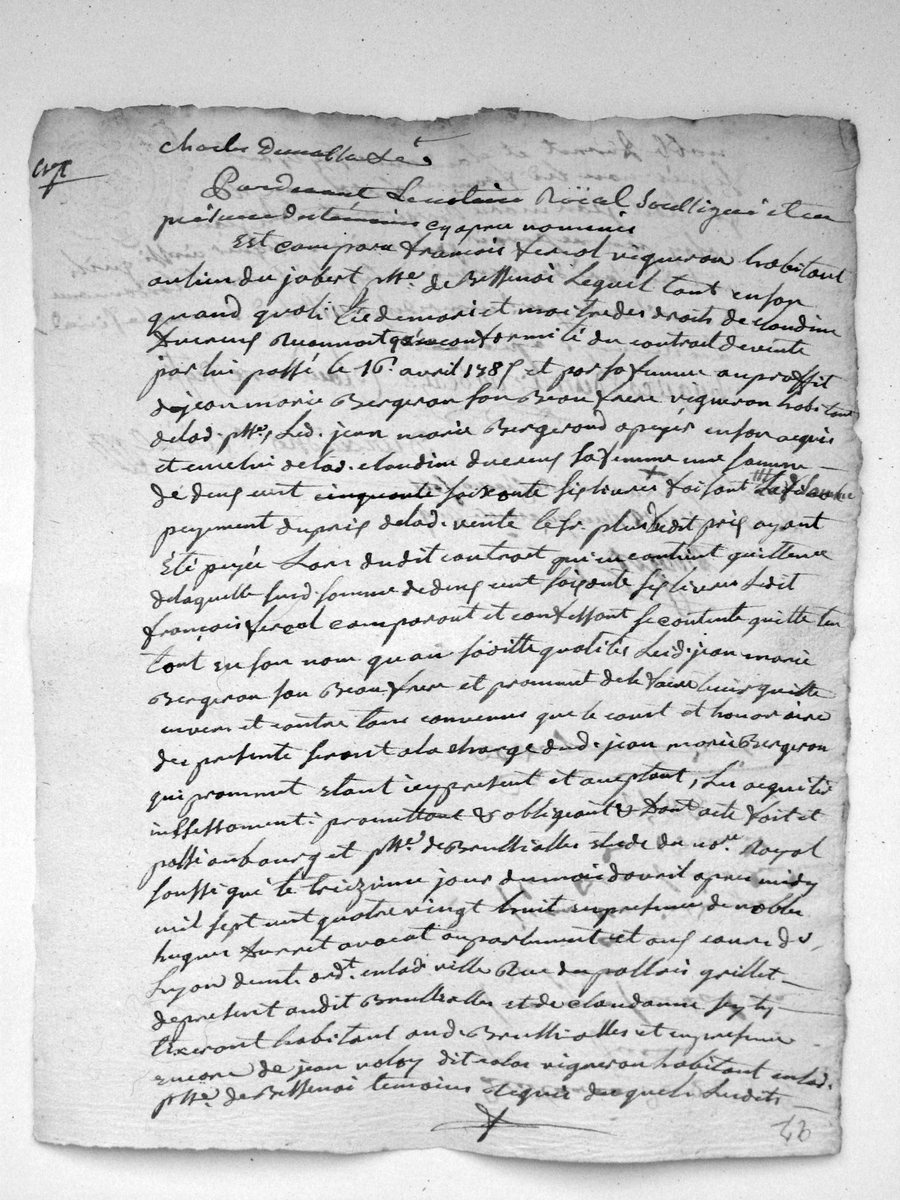 Charles
Pardevant Le notaire Roïal Soussigné et en
présence des témoins cy apres nommés
Est comparu françois feriol vigneron habitant
au lieu du jobert psse. de Bessenai Lequel tant en son
quand qualitée de mari et maitre des droits de claudine
conformité du contrat de vente
par lui passé le 16e. avril 1785 et par sa femme au proffit
de jean marie Bergeron son Beau frere vigneron habitant
de lad. psse. Led. jean marie Bergerond a payés en son acquis
et en celui de lad. claudine sa femme une somme
de deux cent cinquante soixante six livres faisant
payement du prix de lad. vente le plus dudit prix ayant
Eté payée Lors dudit contrat qui en contient quittence
de laquelle susd. somme de deux cent soixante six livres Ledit
françois feriol comparant et confessant se contente quitte ten
tant en son nom qu'au susditte qualités Led. jean marie
Bergeron son Beau frere et prommet de le faire tenir quitte
envers et contre tous convenus que le coust et honoraire
des presente seront a la charge dud. jean marie Bergeron
qui prommet Etant icy present et aceptant, Les acquité
incessament: promettant & obligeant & Dont acte fait et
passé au bourg et psse. de Brussiolles Etude du nore. Royal
soussigné le treizieme jour du mois d'avril apres midy
mil sept cent quatre vingt huit en presence de noble
hugues Durret avocat au parlement et aux cours de
Lyon demt. ordt. en lad. ville Rue du pallais grillet
de present audit Brussiolles et de claudanne
tixerant habitant aud. Brussiolles et en presence
encore de jean dit colas vigneron habitant en lad.
psse. de Bessenai temoins requis desquels Lesdits